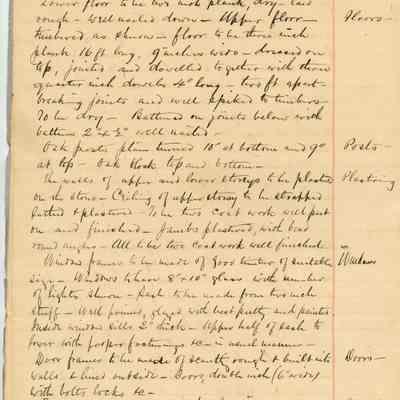 Lower floor to be two inch plank, dry - laid
rough - well nailed down - Upper floor - Floors -
timbered as shown - floor to be three inch
plank 16 ft long, 9 inches wide - dressed on
top, jointed and dowelled together with three
quarter inch dowels 4" long - two ft apart -
breaking joints and well spiked to timbers -
To be dry - Battened on joints below with
battens 2" x ½" well nailed -
Oak posts plum turned 10" at bottom and 9" Posts -
at top - Oak block top and bottom -
The walls of upper and lower storeys to be plastered Plastering
on the stone - Ceiling of upper storey to be strapped
lathed & plastered - To be two coat work well put
on and finished - Jambs plastered, with bead
round angles - All to be two coat work well finished
Window frames to be made of good timber of suitable Windows
size - Windows to have 8" x 10" glass with number
of lights shown - Sash to be made from two inch
stuff - Well primed, glazed with best putty and painted
Inside window sills 2" thick - Upper half of sash to
lower with proper fastenings &c - in usual manner -
Door frames to be made of scantg rough & built into Doors -
walls & lined outside - Doors, double inch (6" wide)
with bolts locks &c -